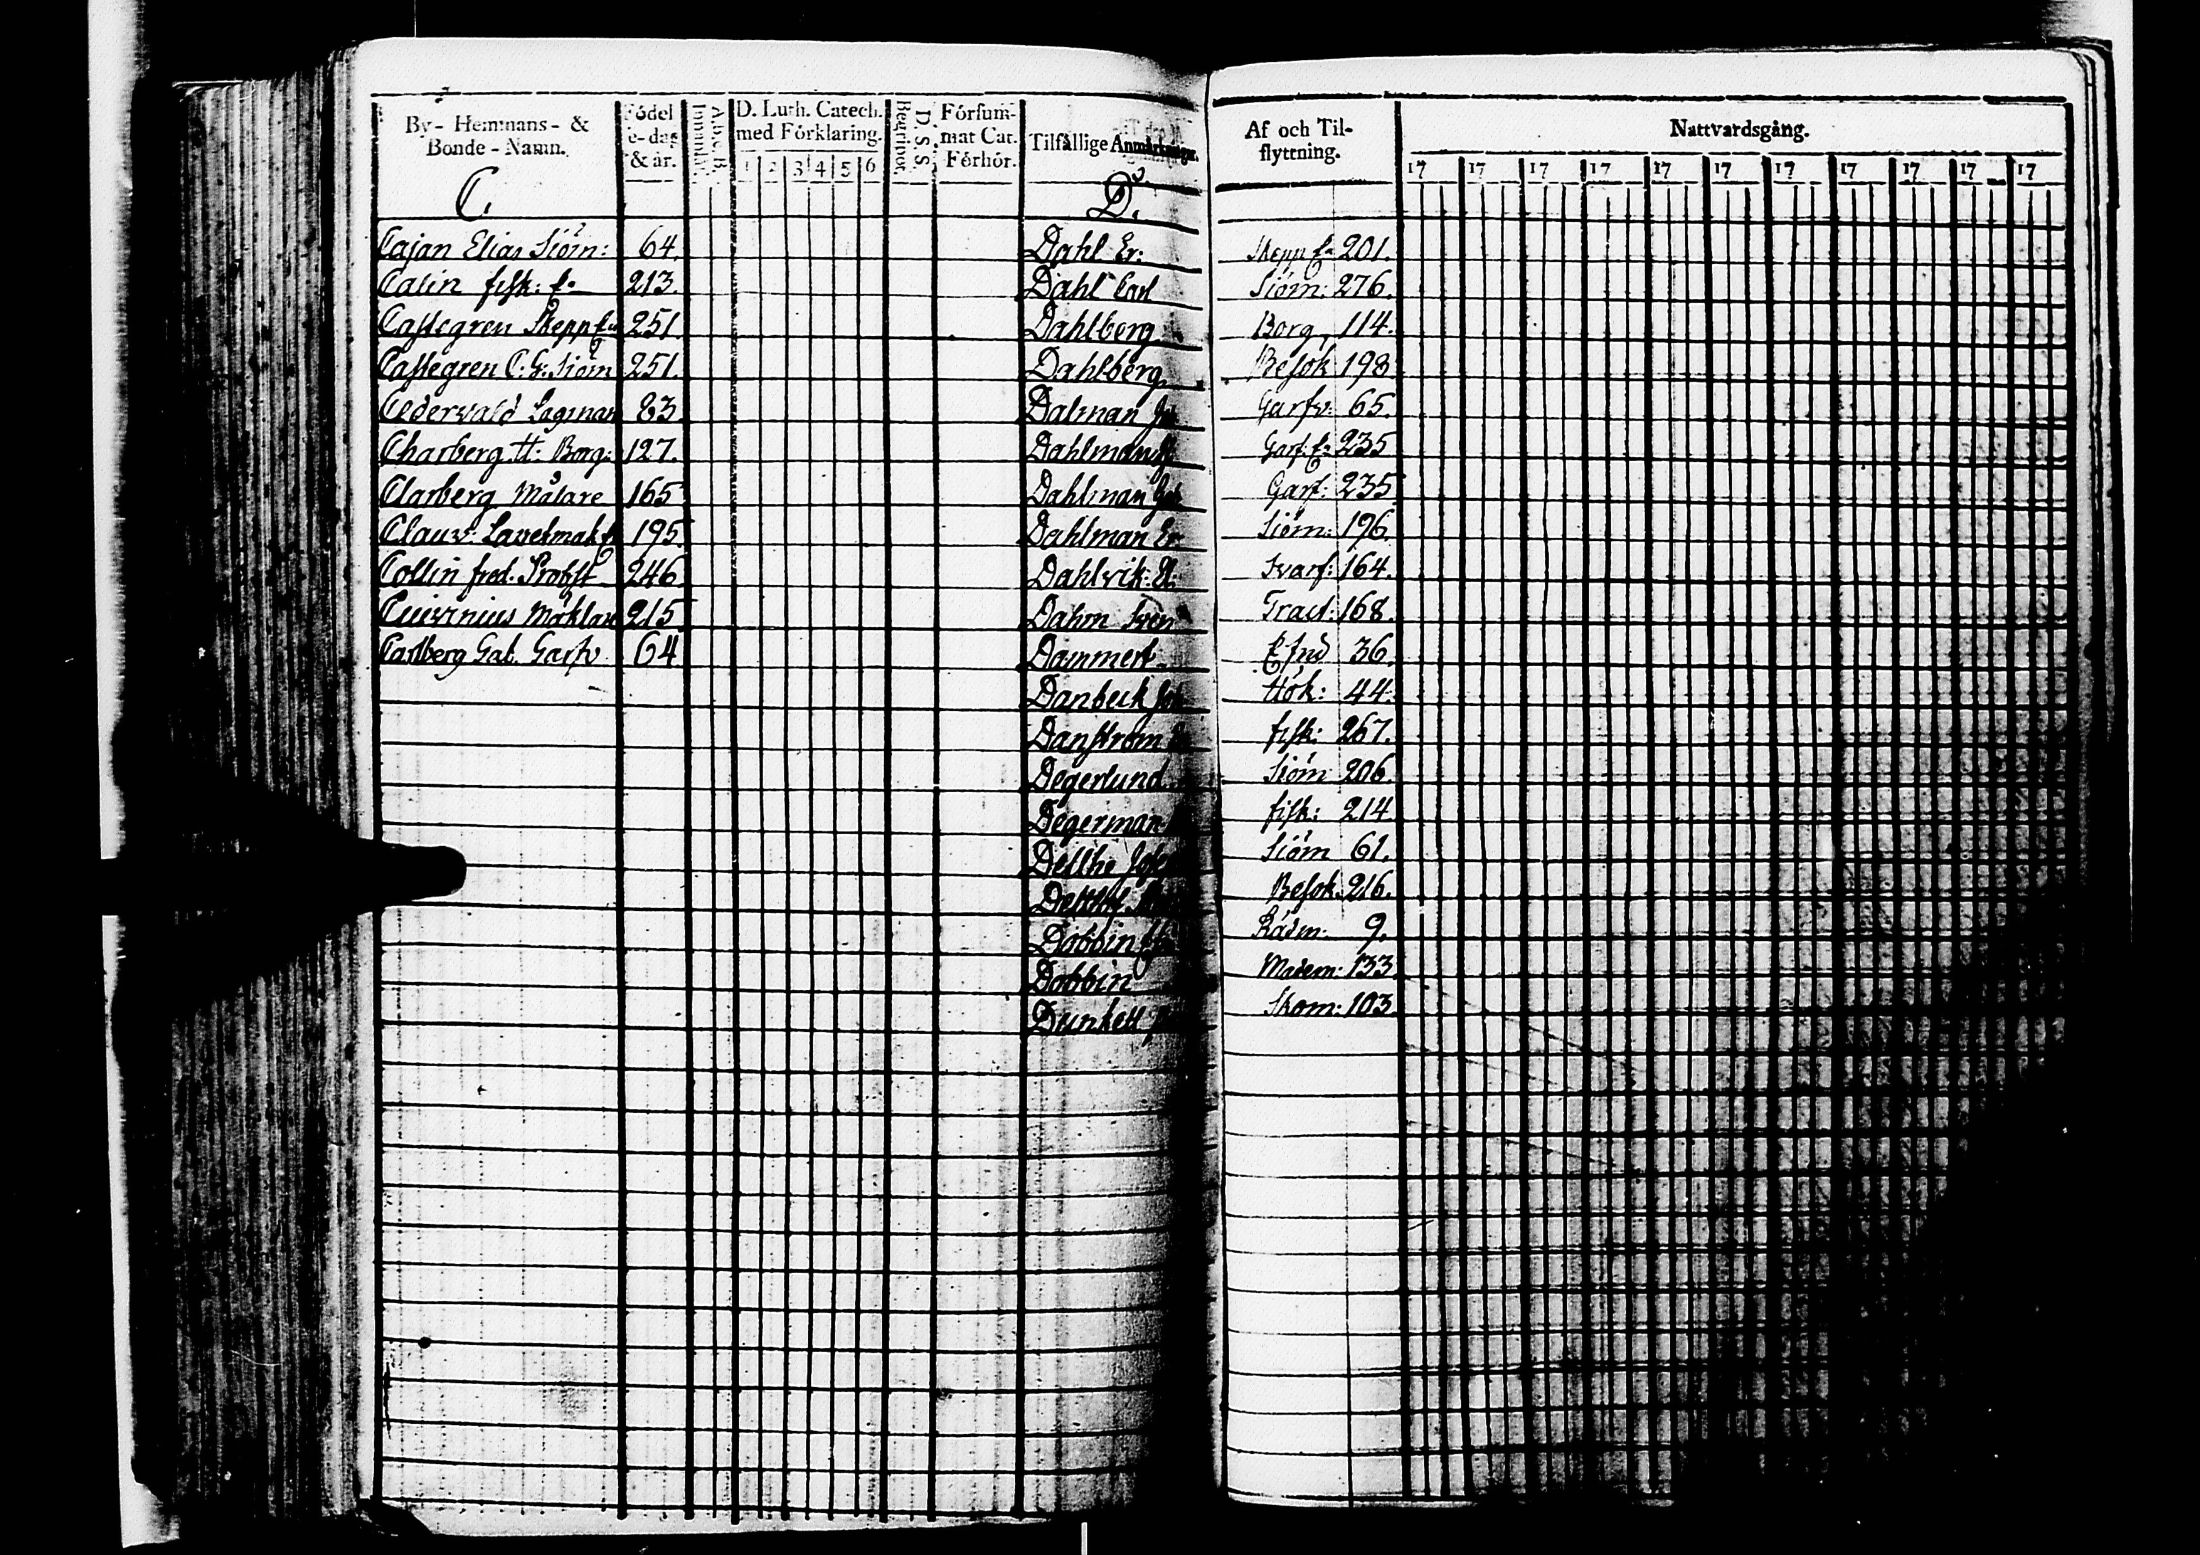 By- Hemmans- &
Bonde-Namn.
Födel
e-dag
& år.
A.b.c.B.
Innanläs.
D. Luth. Catech.
med Förklaring.
1 2 3 4 5 6
D. S. S.
Begriper.
Försum-
mat Cat.
Förhör.
Tilfällige
C.
Cajan Elias Siöm: 64.
Calin fisk: E: 213.
Castegren Skepp E: 251.
Castegren C. G: Siöm 251.
Cedervald Lagman 83
Charberg H: Borg: 127.
Clarberg Målare 165
Claus: 195.
Collin fred. Probst 246
Mäklare 215
Carlberg Gab. Garfv 64
D.
Af och Til-
flyttning.
Nattvardsgång.
17 17 17 17 17 17 17 17 17 17 17
Dahl Er: Skepp E: 201.
Dahl Carl Siöm: 276.
Dahlberg Borg 114.
Dahlberg Besök 198
Dalman Garfv: 65.
Dahlman Garf: E: 235
Dahlman Garf: 235
Dahlman Er Siöm: 196.
Dahlvik: El: Svarf: 164.
Dahm Sven Tract: 168.
Dammert 36.
Danbeck Joh Hök: 44.
Danström fisk: 267.
Degerlund Siöm 206.
Degerman fisk: 214
Siöm 61.
Besök 216.
Dobbin Rådm: 9.
Dobbin Madem: 133
Dunkell Skom: 103.